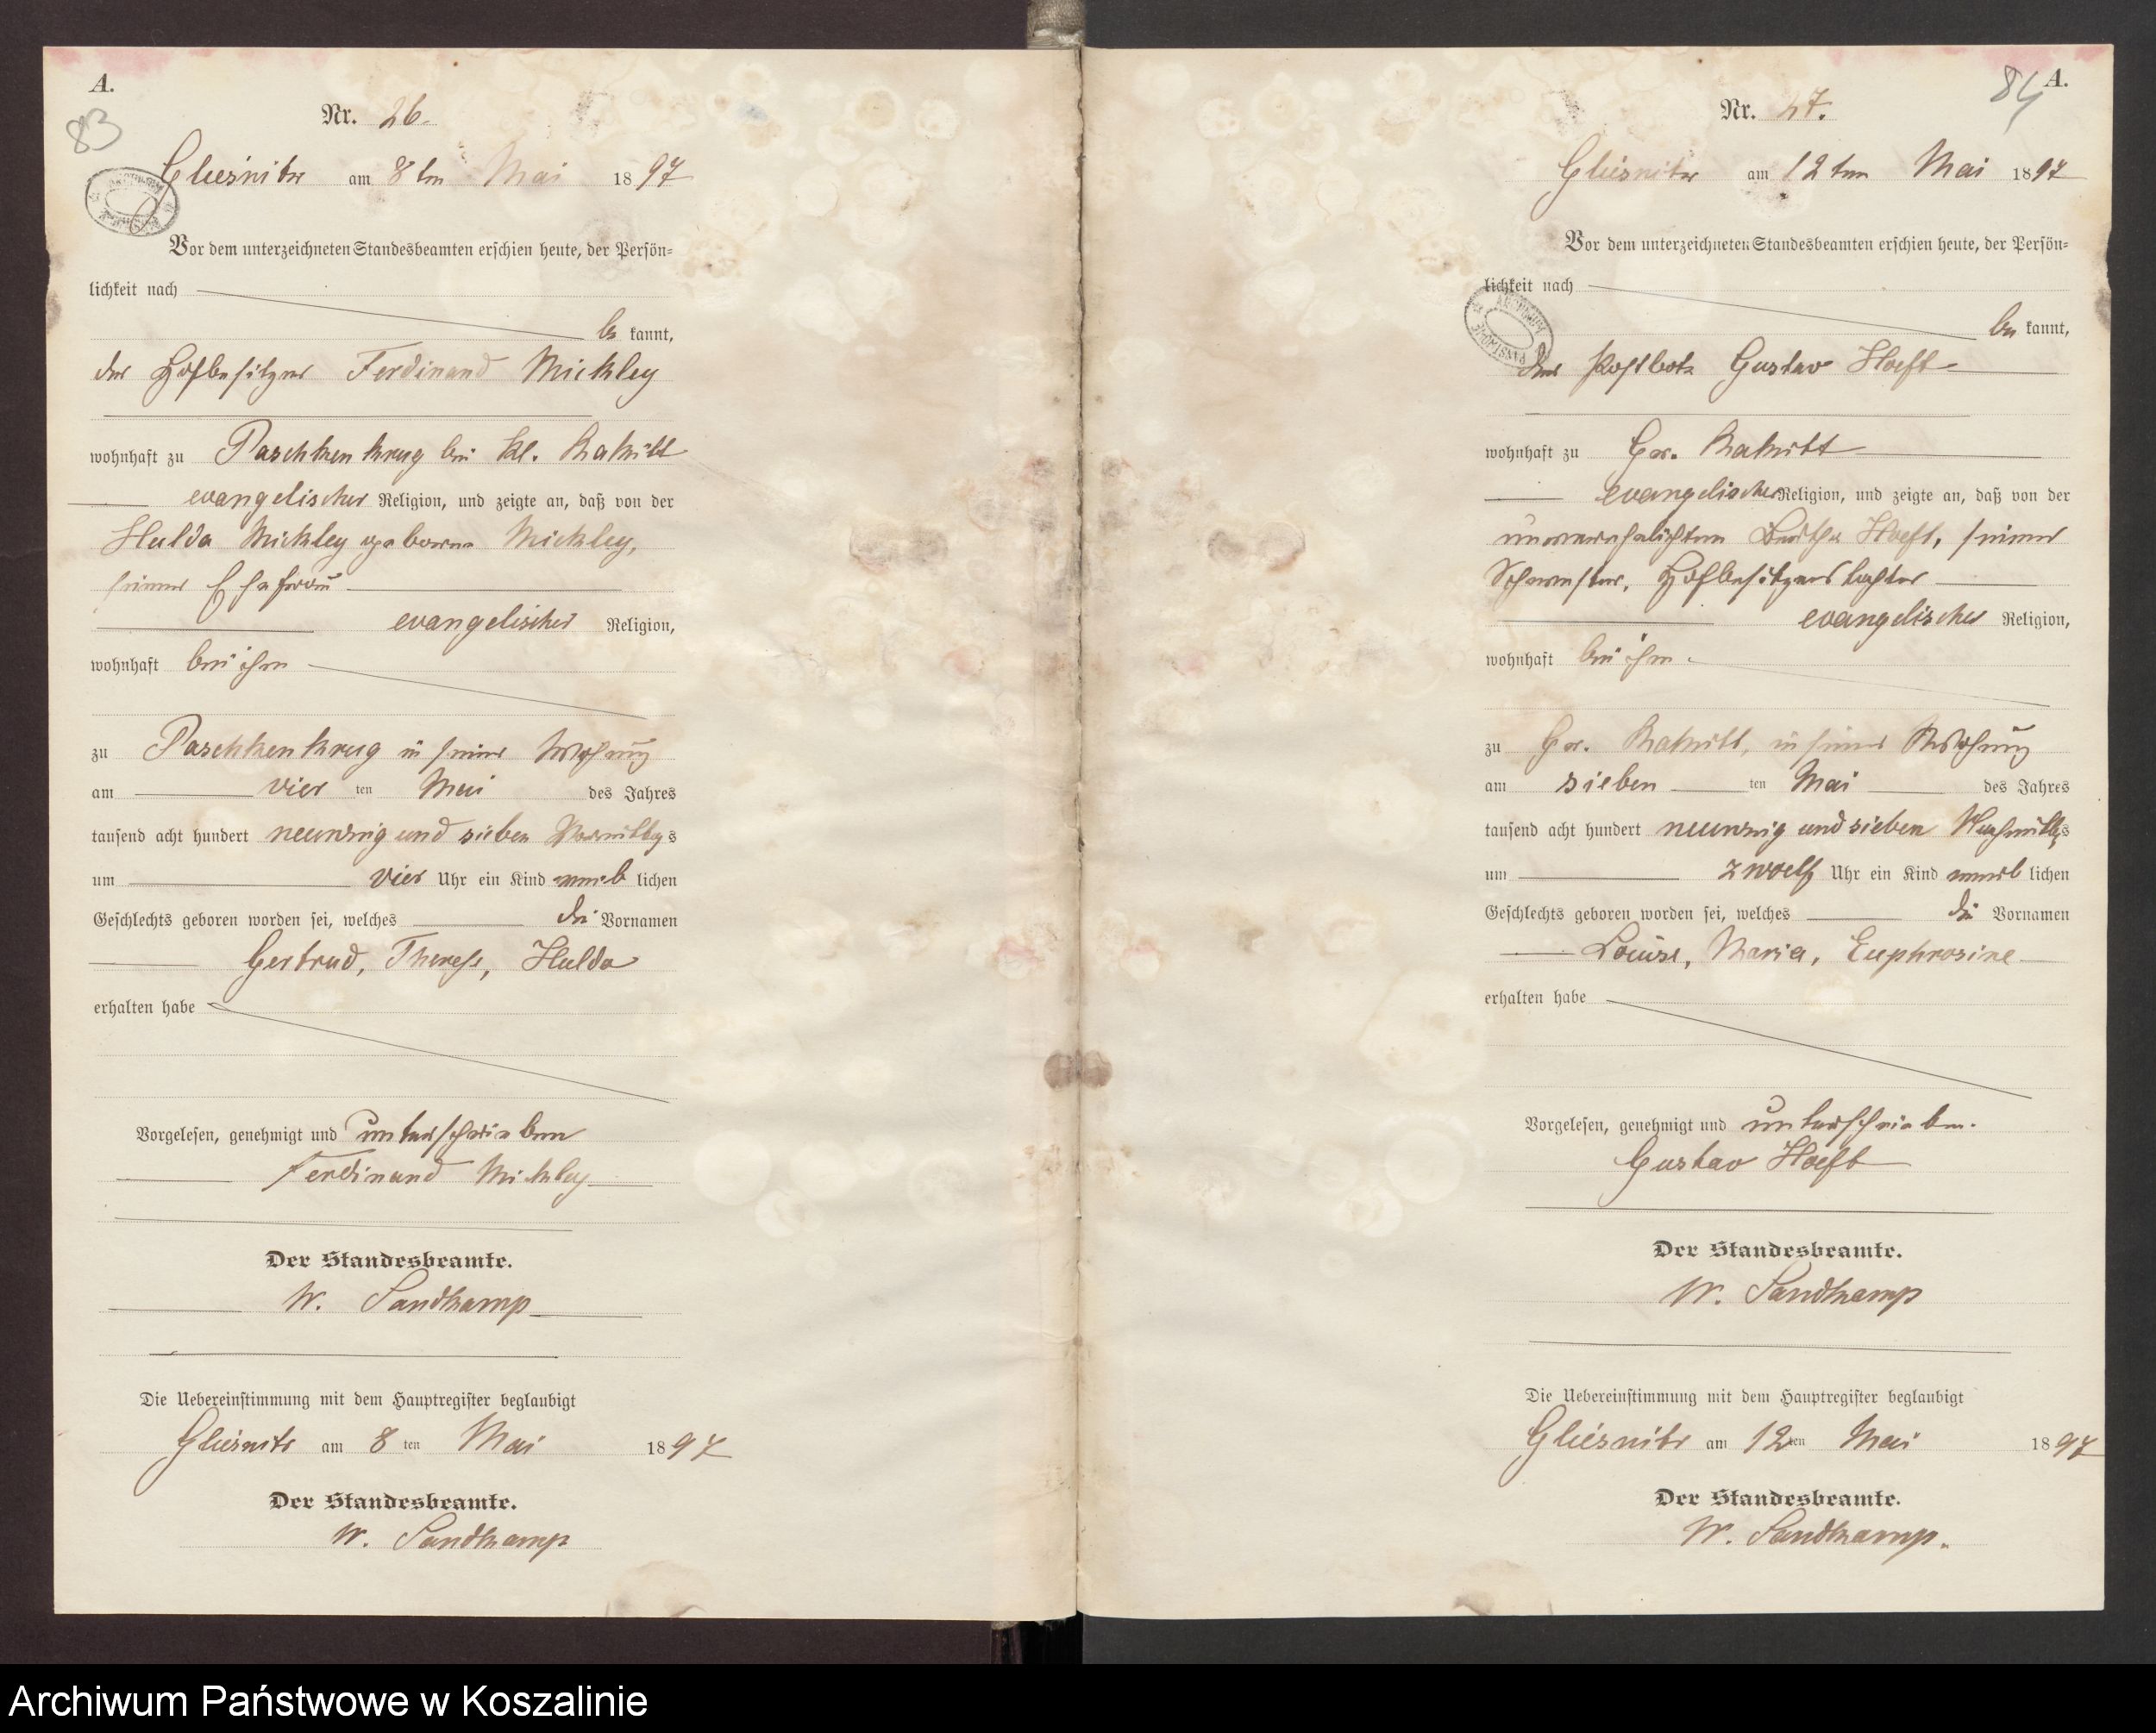 A.
83
Nr. 26.
Gliesnitz am 8ten Mai 1897
Vor dem unterzeichneten Standesbeamten erschien heute, der Persön=
lichkeit nach
be kannt,
der Hofbesitzer Ferdinand Mickley
wohnhaft zu Paschkenkrug bei Kl. Rakitt
evangelischer Religion, und zeigte an, daß von der
Hulda Mickley geborene Mickley,
seiner Ehefrau
evangelischer Religion,
wohnhaft bei ihm
zu Paschkenkrug in seiner Wohnung
am vier ten Mai des Jahres
tausend acht hundert neunzig und sieben Vormittags
um vier Uhr ein Kind weib lichen
Geschlechts geboren worden sei, welches die Vornamen
Gertrud, Therese, Hulda
erhalten habe
Vorgelesen, genehmigt und unterschrieben
Ferdinand Mickley
Der Standesbeamte.
W. Sandkamp
Die Uebereinstimmung mit dem Hauptregister beglaubigt
Gliesnitz am 8 ten Mai 1897
Der Standesbeamte.
W. Sandkamp
84
A.
Nr. 27.
Gliesnitz am 12ten Mai 1897
Vor dem unterzeichneten Standesbeamten erschien heute, der Persön=
lichkeit nach
be kannt,
der Postbote Gustav Hoeft
wohnhaft zu Gr. Rakitt
evangelischer Religion, und zeigte an, daß von der
unverehelichten Bertha Hoeft, seiner
Schwester, Hofbesitzerstochter
evangelischer Religion,
wohnhaft bei ihm
zu Gr. Rakitt, in seiner Wohnung
am sieben ten Mai des Jahres
tausend acht hundert neunzig und sieben Nachmittags
um zwoelf Uhr ein Kind weib lichen
Geschlechts geboren worden sei, welches die Vornamen
Louise, Maria, Euphrosine
erhalten habe
Vorgelesen, genehmigt und unterschrieben.
Gustav Hoeft
Der Standesbeamte.
W. Sandkamp
Die Uebereinstimmung mit dem Hauptregister beglaubigt
Gliesnitz am 12 ten Mai 1897
Der Standesbeamte.
W. Sandkamp.
Archiwum Państwowe w Koszalinie